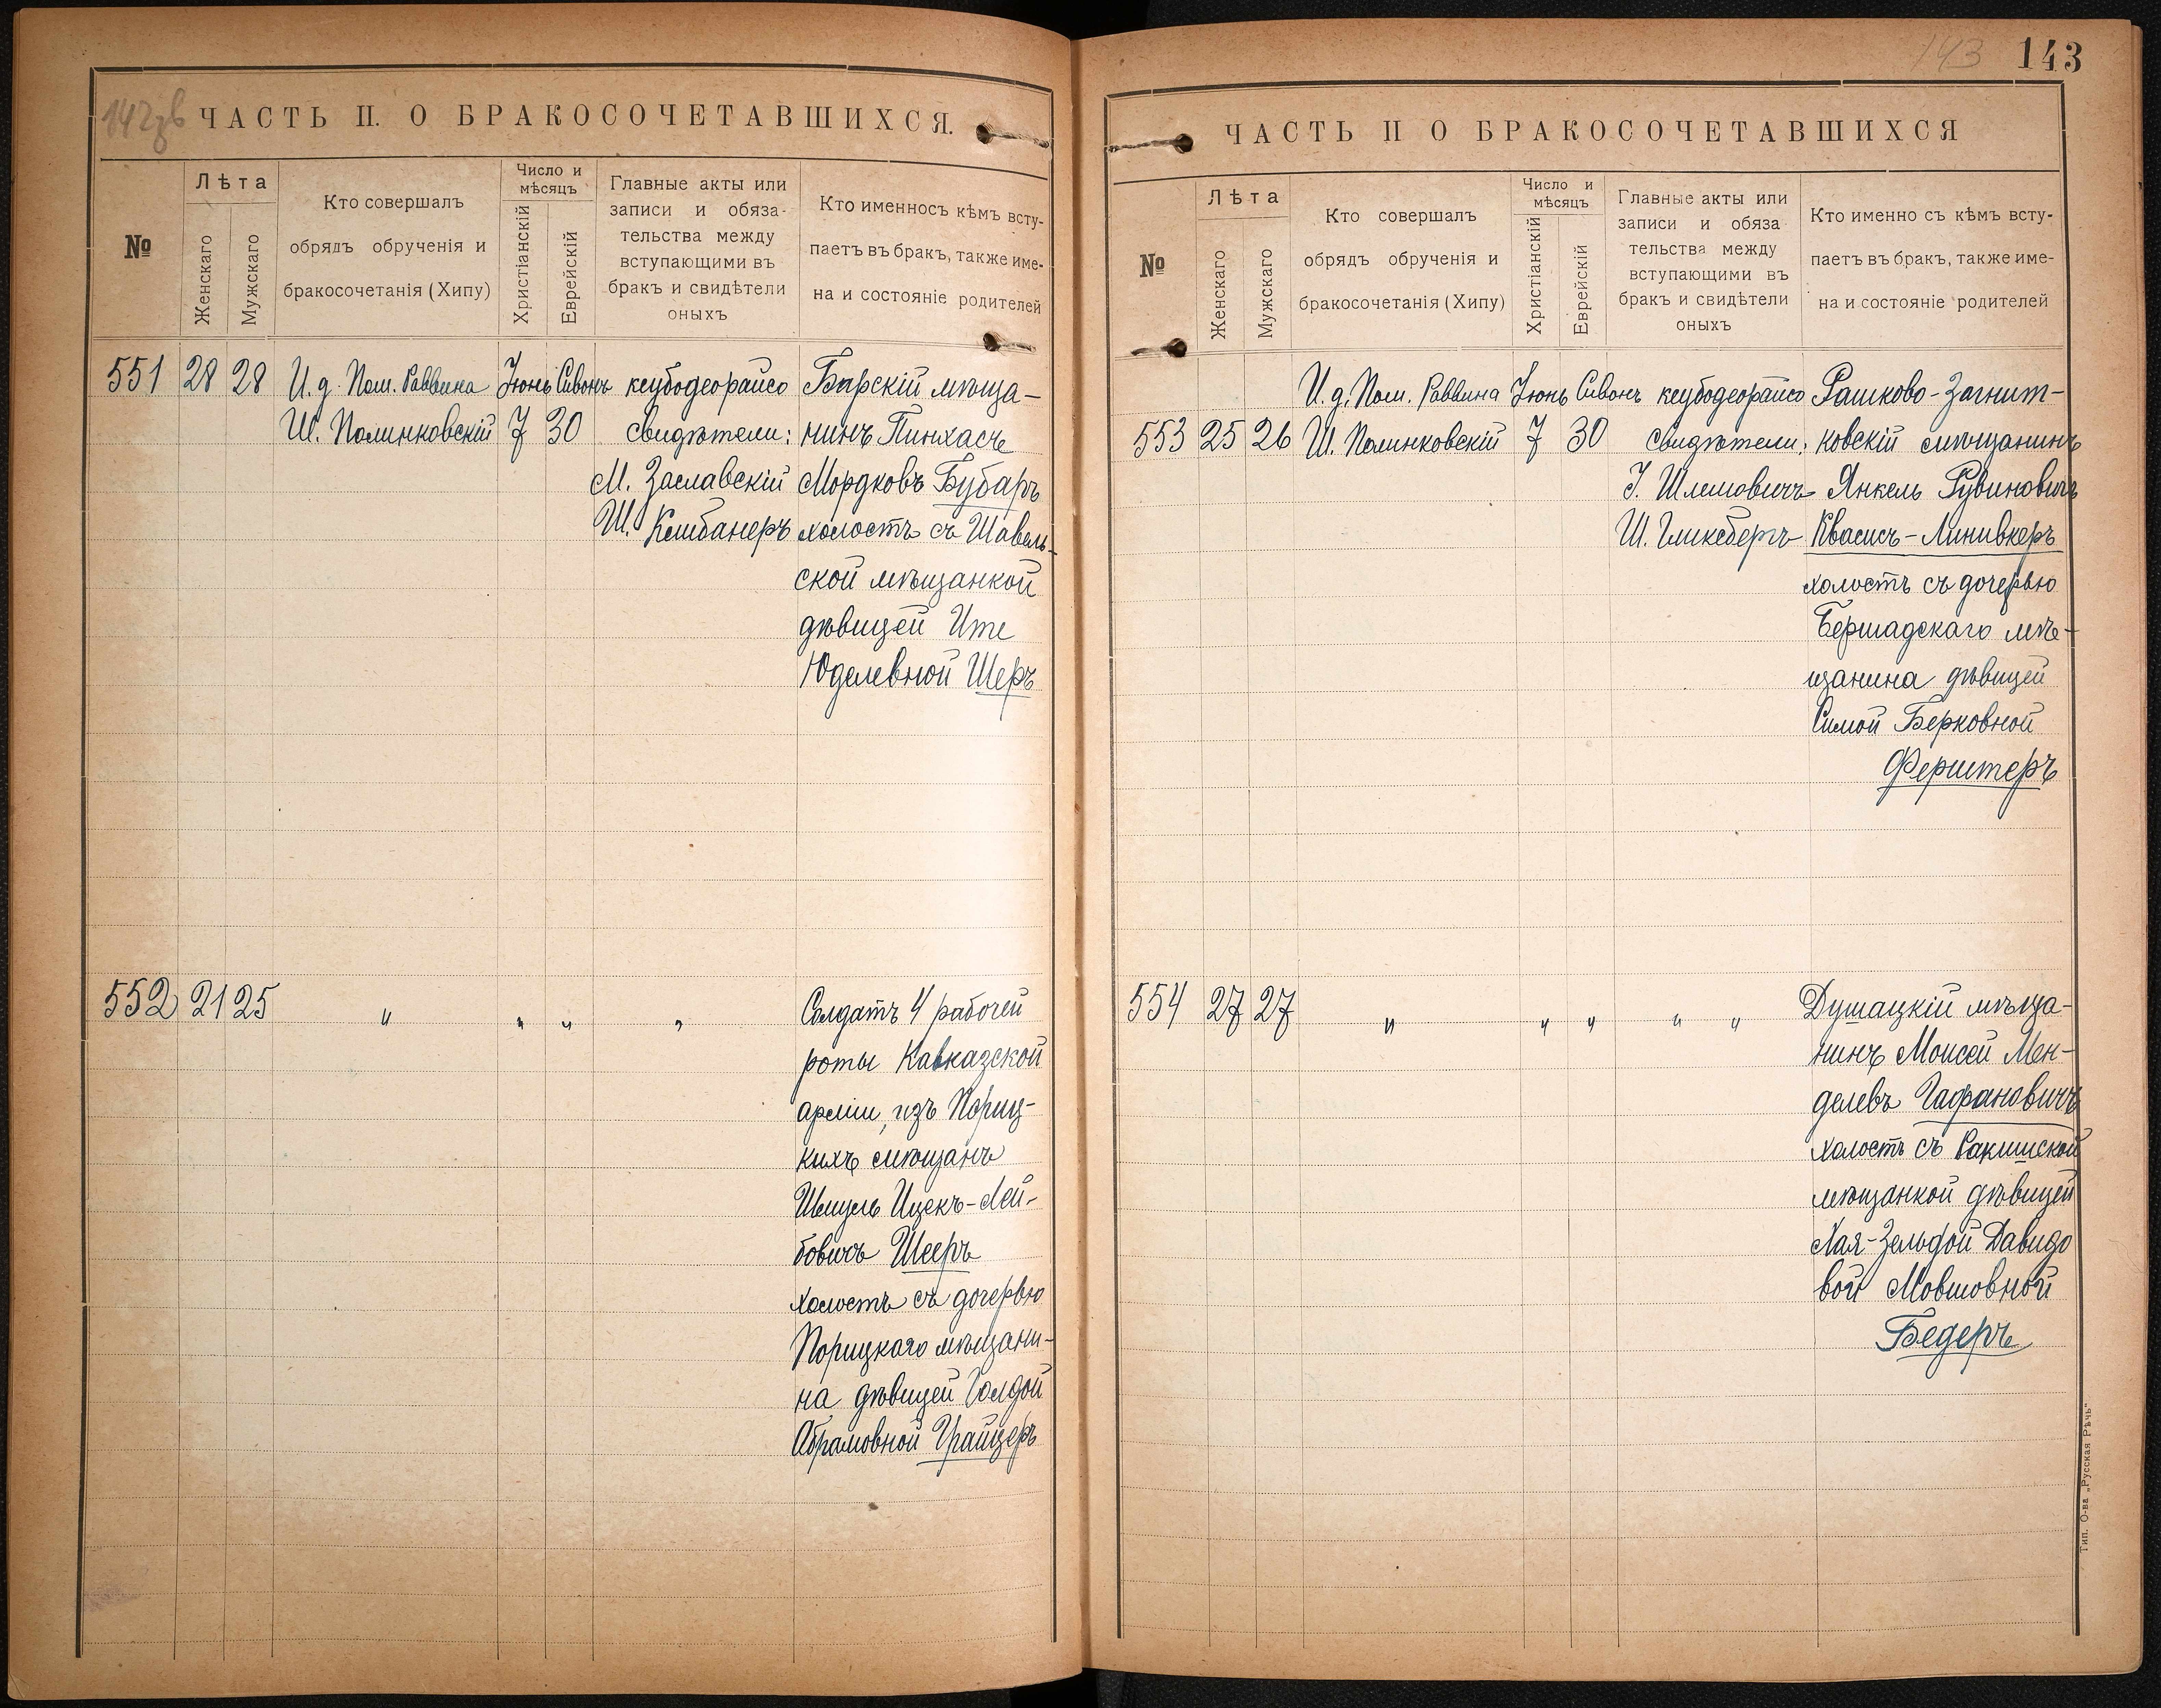 142зв
ЧАСТЬ II. О БРАКОСОЧЕТАВШИХСЯ.
№
Лѣта
Женскаго
Мужскаго
Кто совершалъ
обрядъ обрученія и
бракосочетанія (Хипу)
Число и
мѣсяцъ
Христіанскій
Еврейскій
Главные акты или
записи и обяза-
тельства между
вступающими въ
бракъ и свидѣтели
оныхъ
Кто именносъ кѣмъ всту-
паетъ въ бракъ, также име-
на и состояніе родителей
551 28 28 И. д. Пом. Раввина Іюнь Сивонъ кеубодеорайсо Барскій мѣща-
Ш. Полинковскій 7 30 свидѣтели: нинъ Пинхасъ
М. Заславскій Мордковъ Бубаръ
Ш. Кешбанеръ холостъ съ Шавель-
ской мѣщанкой
дѣвицей Ите
Юделевной Шеръ
552 21 25 " " " " Солдатъ 4 рабочей
роты Кавказской
арміи, изъ Пориц-
кихъ мѣщанъ
Шмуль Ицекъ-Лей-
бовичъ Шееръ
холостъ съ дочерью
Порицкаго мѣщани-
на дѣвицей Голдой
Абрамовной Грайцеръ
143 143
ЧАСТЬ II О БРАКОСОЧЕТАВШИХСЯ
№
Лѣта
Женскаго
Мужскаго
Кто совершалъ
обрядъ обрученія и
бракосочетанія (Хипу)
Число и
мѣсяцъ
Христіанскій
Еврейскій
Главные акты или
записи и обяза
тельства между
вступающими въ
бракъ и свидѣтели
оныхъ
Кто именно съ кѣмъ всту-
паетъ въ бракъ, также име-
на и состояніе родителей
И. д. Пом. Раввина Іюнь Сивонъ кеубодеорайсо Рашково-Загнит-
553 25 26 Ш. Полинковскій 7 30 свидѣтели: ковскій мѣщанинъ
І. Шлемовичъ Янкель Рувиновичъ
Ш. Гликсбергъ Квасисъ-Линивкеръ
холостъ съ дочерью
Бершадскаго мѣ-
щанина дѣвицей
Симой Берковной
Ферштеръ
554 27 27 " " " " " Душацкій мѣща-
нинъ Моисей Мен-
делевъ Гафановичъ
холостъ съ Ракишской
мѣщанкой дѣвицей
Хая-Зельдой Давидо
вой Мовшовной
Бедеръ
Тип. О-ва „Русская Рѣчь“